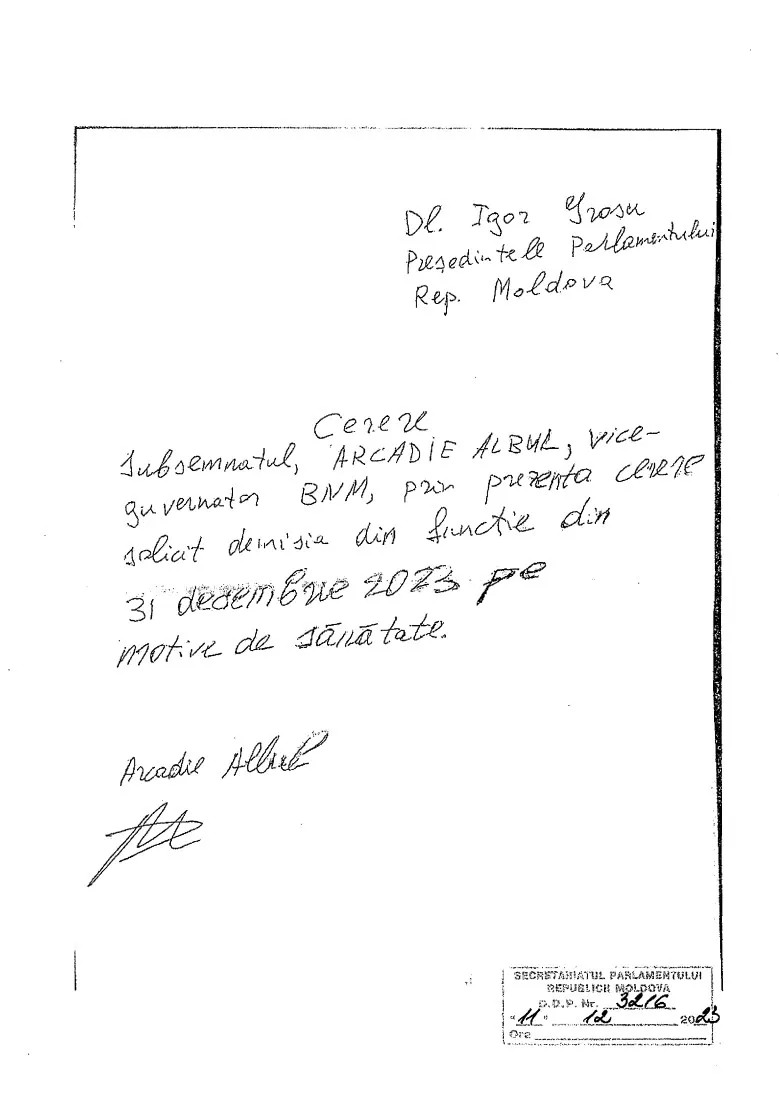 Dl. Igor Grosu
Președintele Parlamentului
Rep. Moldova
Cerere
Subsemnatul, ARCADIE ALBUL, vice-
guvernator BNM, prin prezenta cerere
solicit demisia din functie din
31 decembrie 2023 pe
motive de sănătate.
Arcadie Albul
SECRETARIATUL PARLAMENTULUI
REPUBLICII MOLDOVA
D.D.P. Nr. 3216
"11" 12 2023
Ora